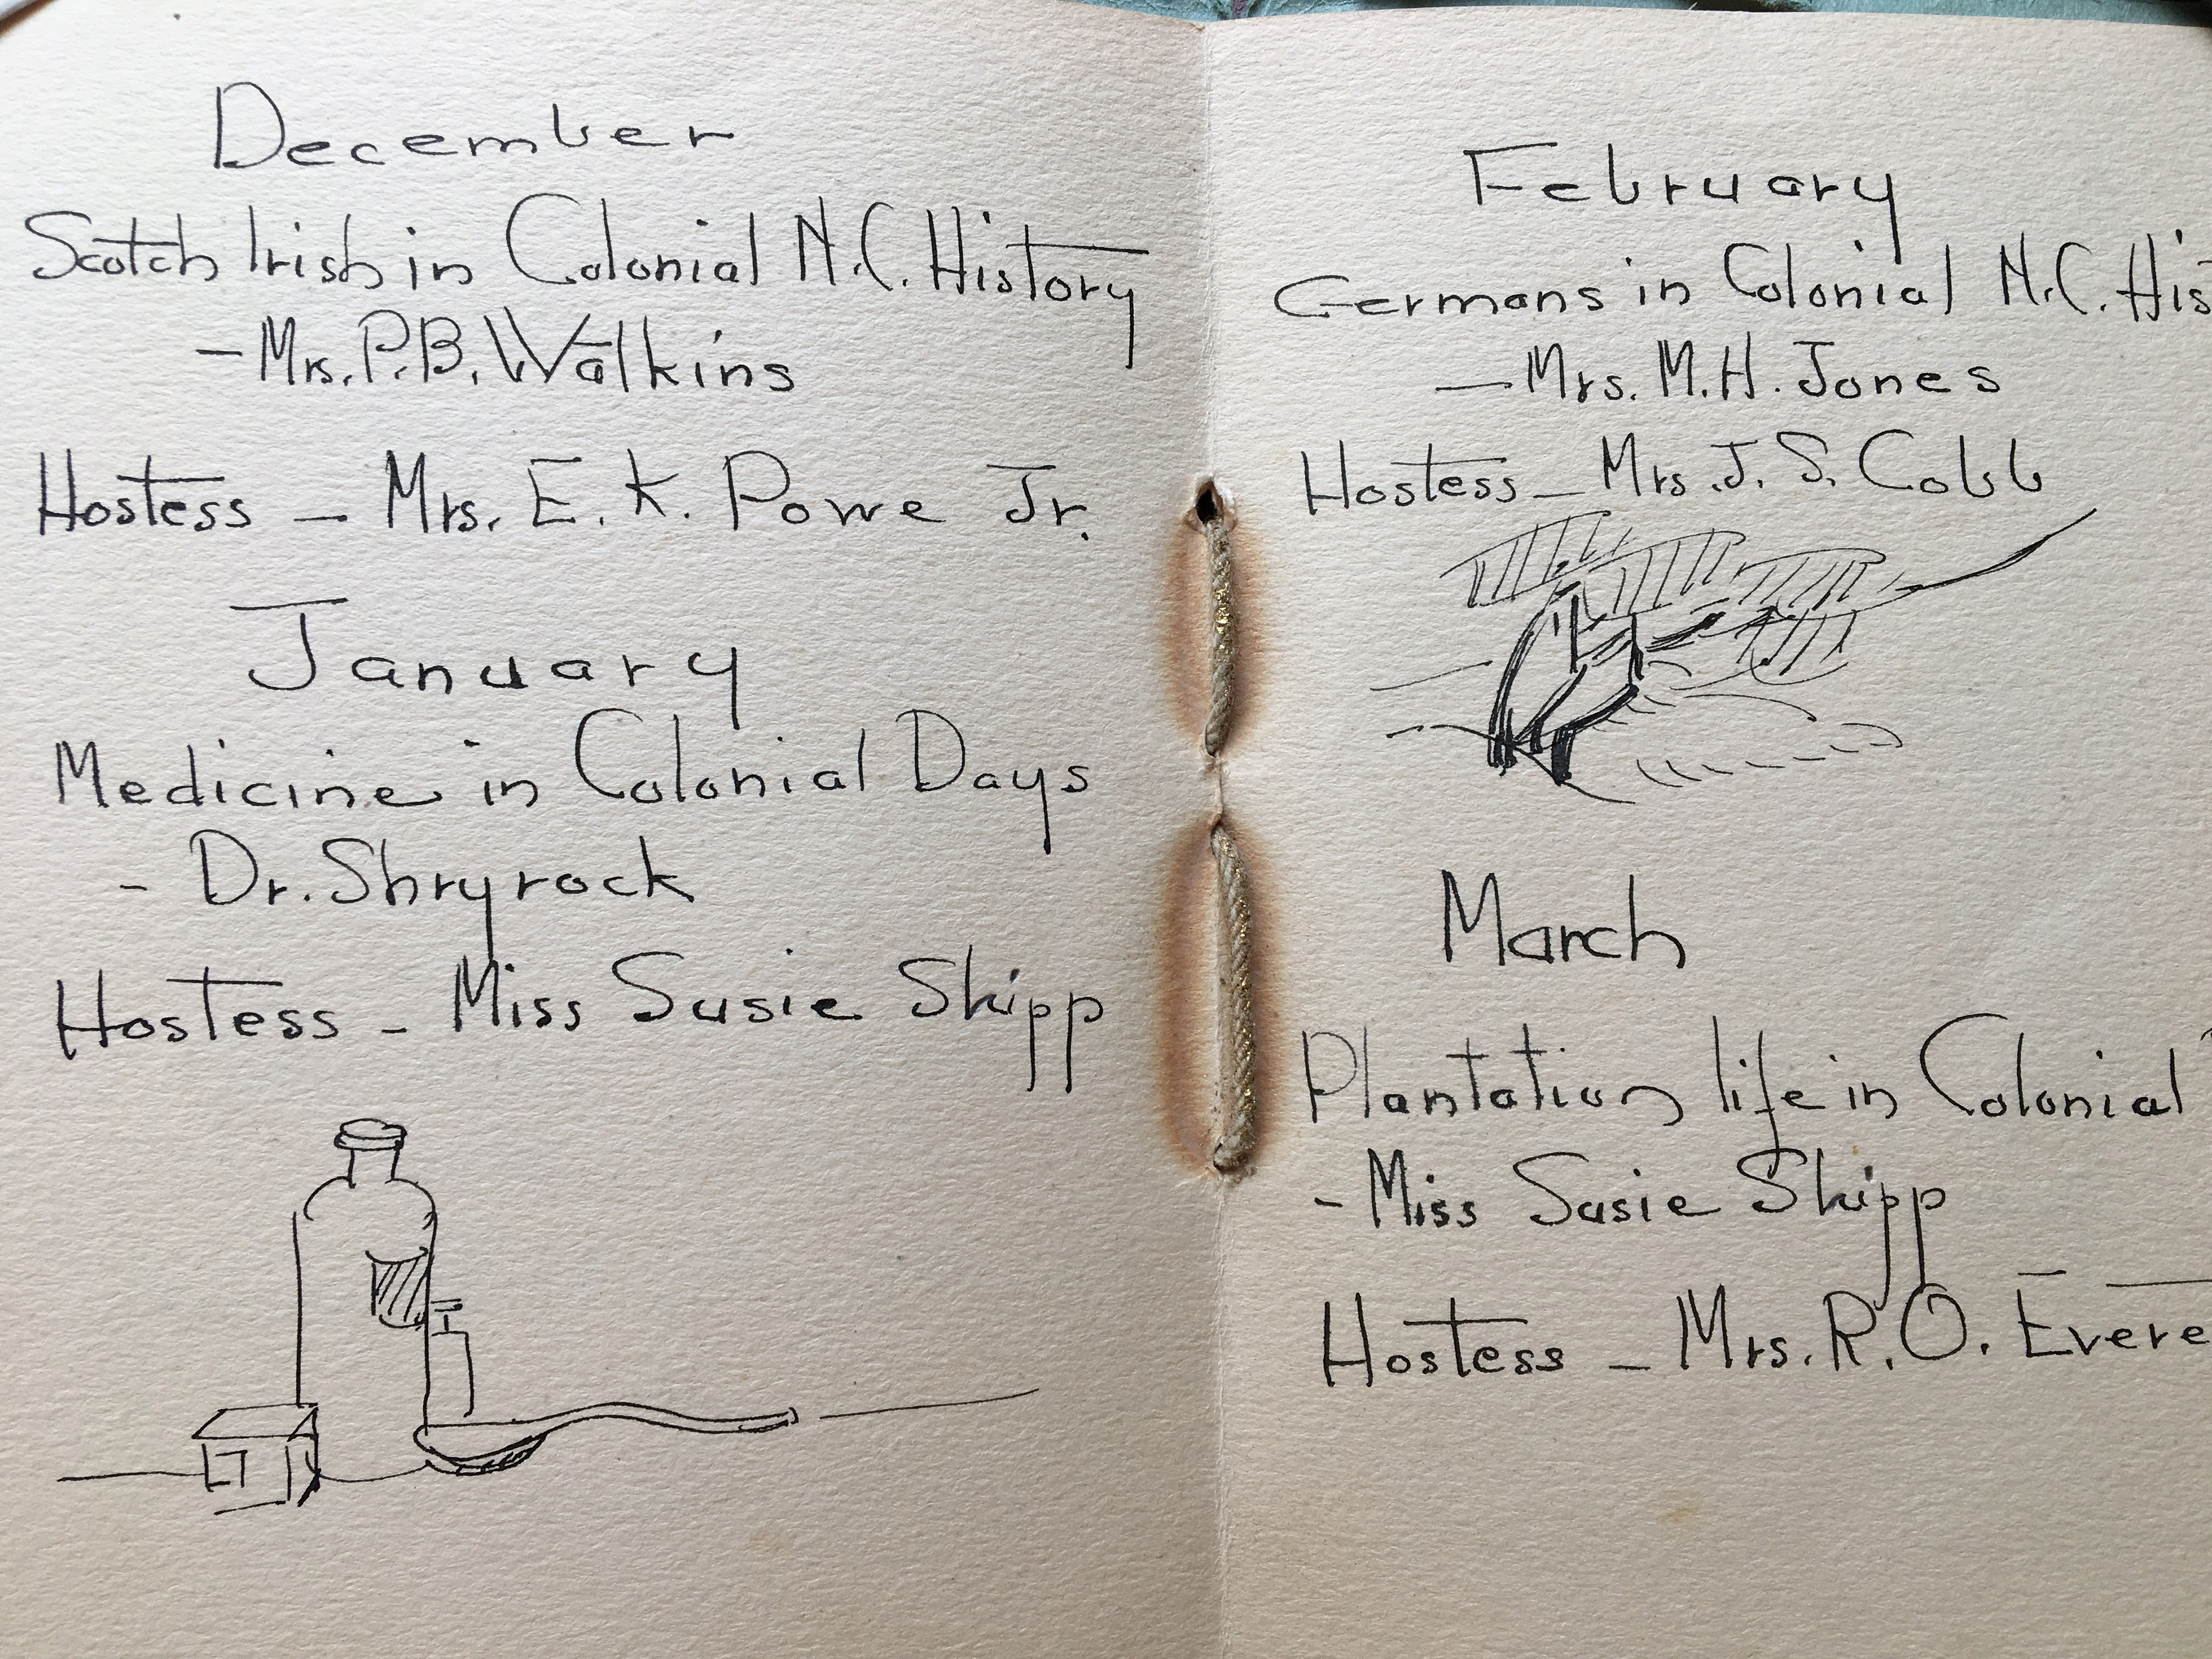 December
Scotch Irish in Colonial N.C. History
- Mrs. P.B. Watkins
Hostess - Mrs. E. K. Powe Jr.
January
Medicine in Colonial Days
- Dr. Shryrock
Hostess - Miss Susie Skipp
February
Germans in Colonial N.C. His
- Mrs. M.H. Jones
Hostess - Mrs. J. S. Cobb
March
Plantation life in Colonial
- Miss Susie Skipp
Hostess - Mrs. R.O. Evere